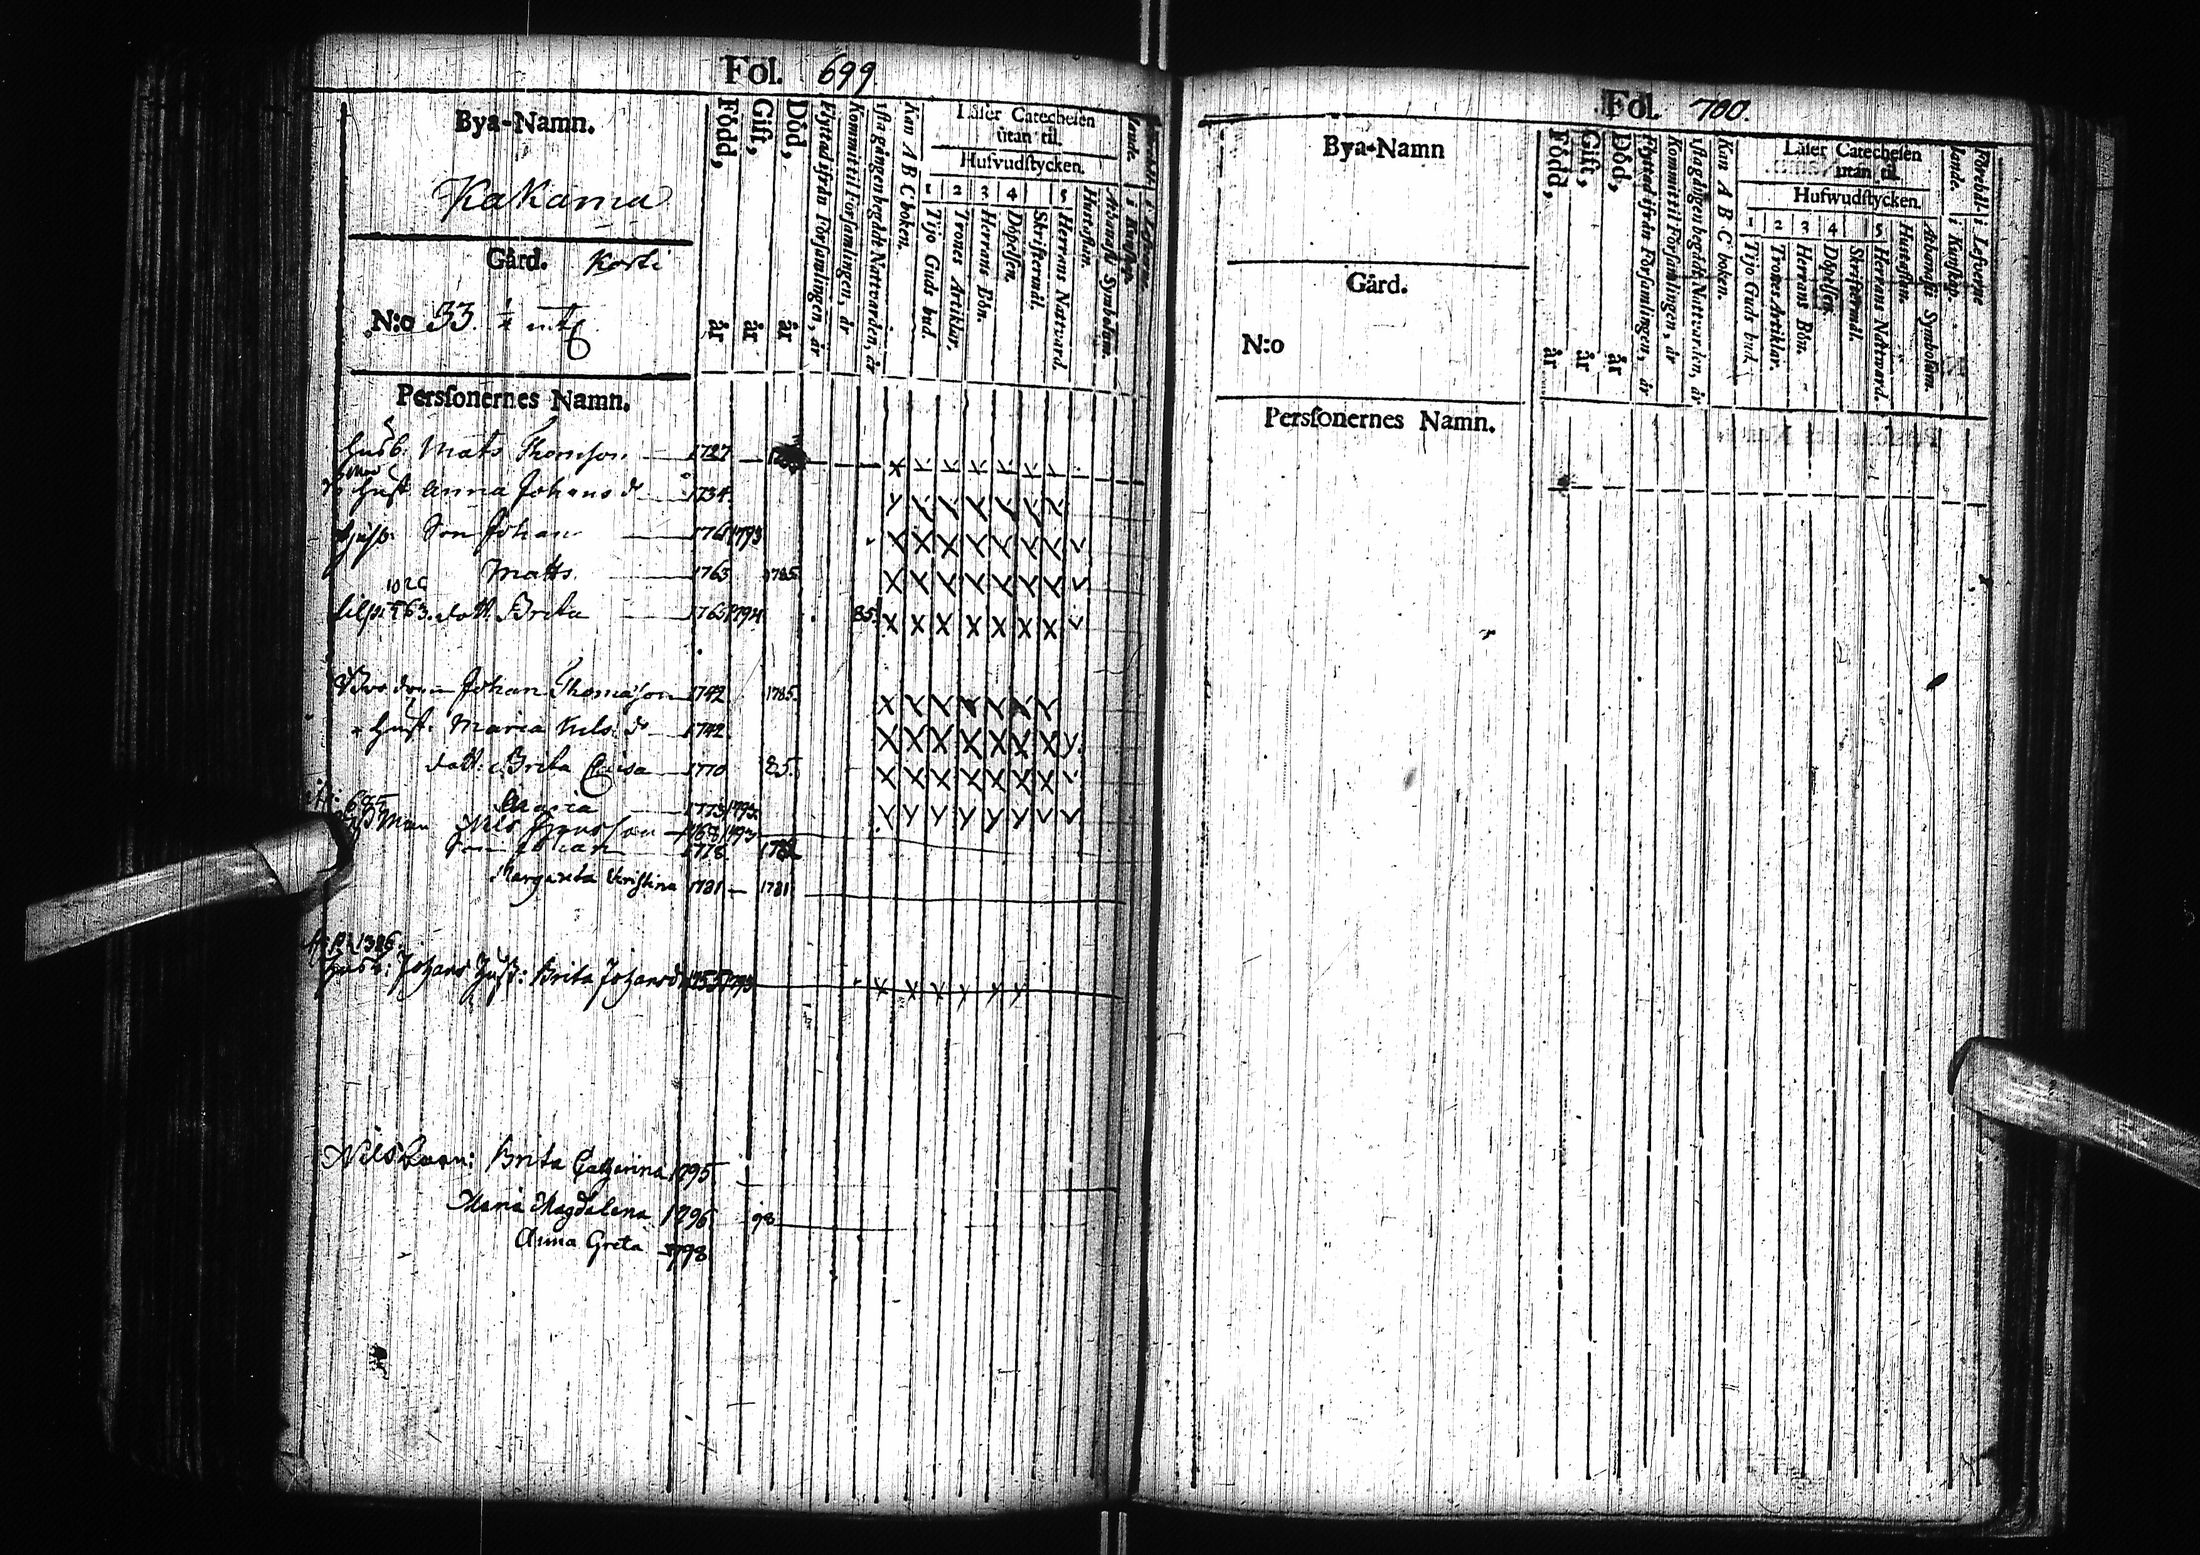 Fol. 699
Bya-Namn.
Kakama
Gård. Korti
N:o 33 1/4 mtl
Född, år
Gift, år
Död, år
Flyttad ifrån Församlingen, år
Kommit til Församlingen, år
1sta gången begådt Nattvarden, år
Kan A B C boken.
Läser Catechesen
utan til.
Hufvudstycken.
1 2 3 4 5
Tijo Guds bud.
Trones Artiklar.
Herrans Bön.
Döpelsen.
Skriftermål.
Herrans Nattvard.
Hustaflan.
Athanasii Symbolum.
Personernes Namn.
Husb. Mats Thomson 1727
Hust Anna Johans d 1734
Son Johan 1761 1793
Matts 1763 1785
1020
563. dott. Brita 1765 1794 85.
Johan Thomasson 1742 1785.
Hust. Maria Nils d 1742
dott. Brita Caisa 1770 85.
Maria 1773 1793.
Man Nils 1768 1793
Son Johan 1778
Margareta Kristina 1781 1781
Johans Hust: Brita Johansd 1755 1793
Nils Barn: Brita Catharina 1795
Maria Magdalena 1796 98
Anna Greta 1798
Fol. 700.
Bya-Namn
Gård.
N:o
Född, år
Gift, år
Död, år
Flyttad ifrån Församlingen, år
Kommit til Församlingen, år
1sta gången begådt Nattvarden, år
Kan A B C boken.
Läser Catechesen
utan til.
Hufwudstycken.
1 2 3 4 5
Tijo Guds bud.
Trones Artiklar.
Herrans Bön.
Döpelsen.
Skriftermål.
Herrans Nattvard.
Hustaflan.
Athanasii Symbolum.
Förehållande i Kunskap.
i Lefverne
Personernes Namn.